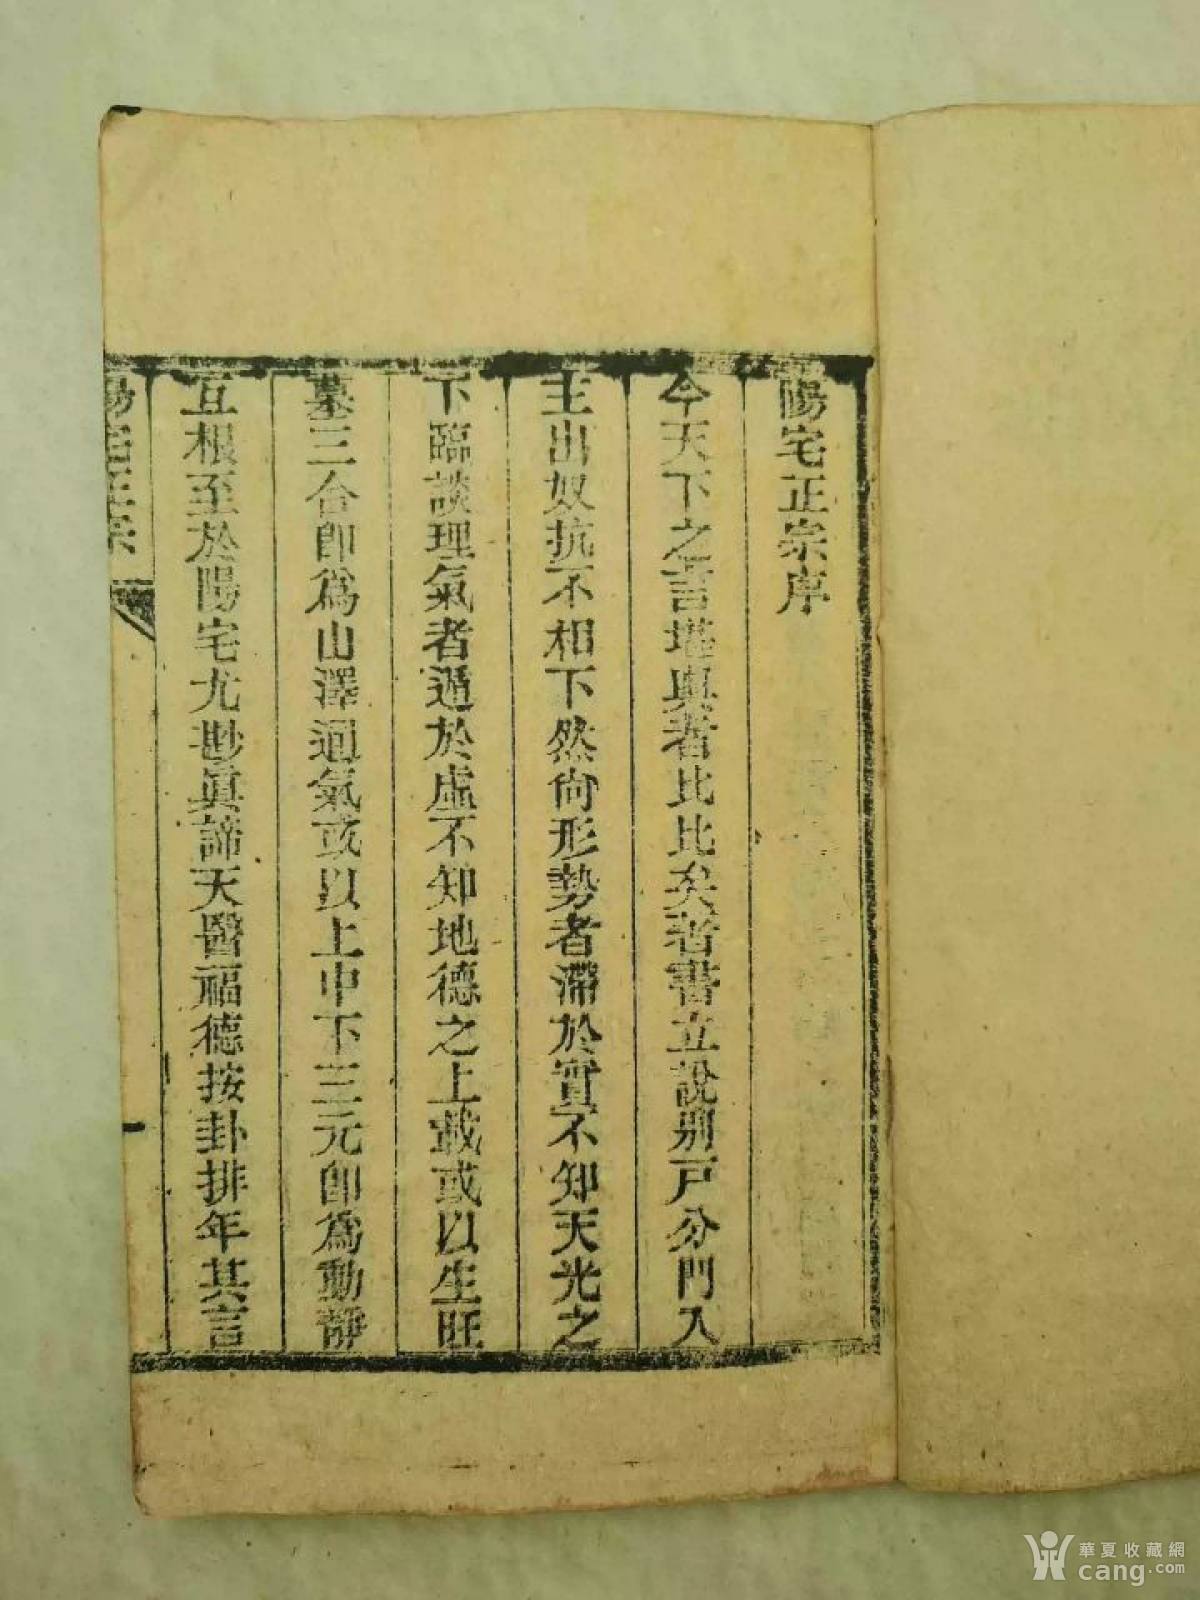 陽宅正宗序
今天下之言堪輿者比比矣著書立說別戸分門入
主出奴抗不相下然向形勢者滯於實不知天光之
下臨談理氣者遁於虛不知地德之上載或以生旺
墓三合卽爲山澤通氣或以上中下三元卽爲動靜
互根至於陽宅尤尠眞諦天醫福德按卦排年其言
陽宅正宗
華夏收藏網
cang.com